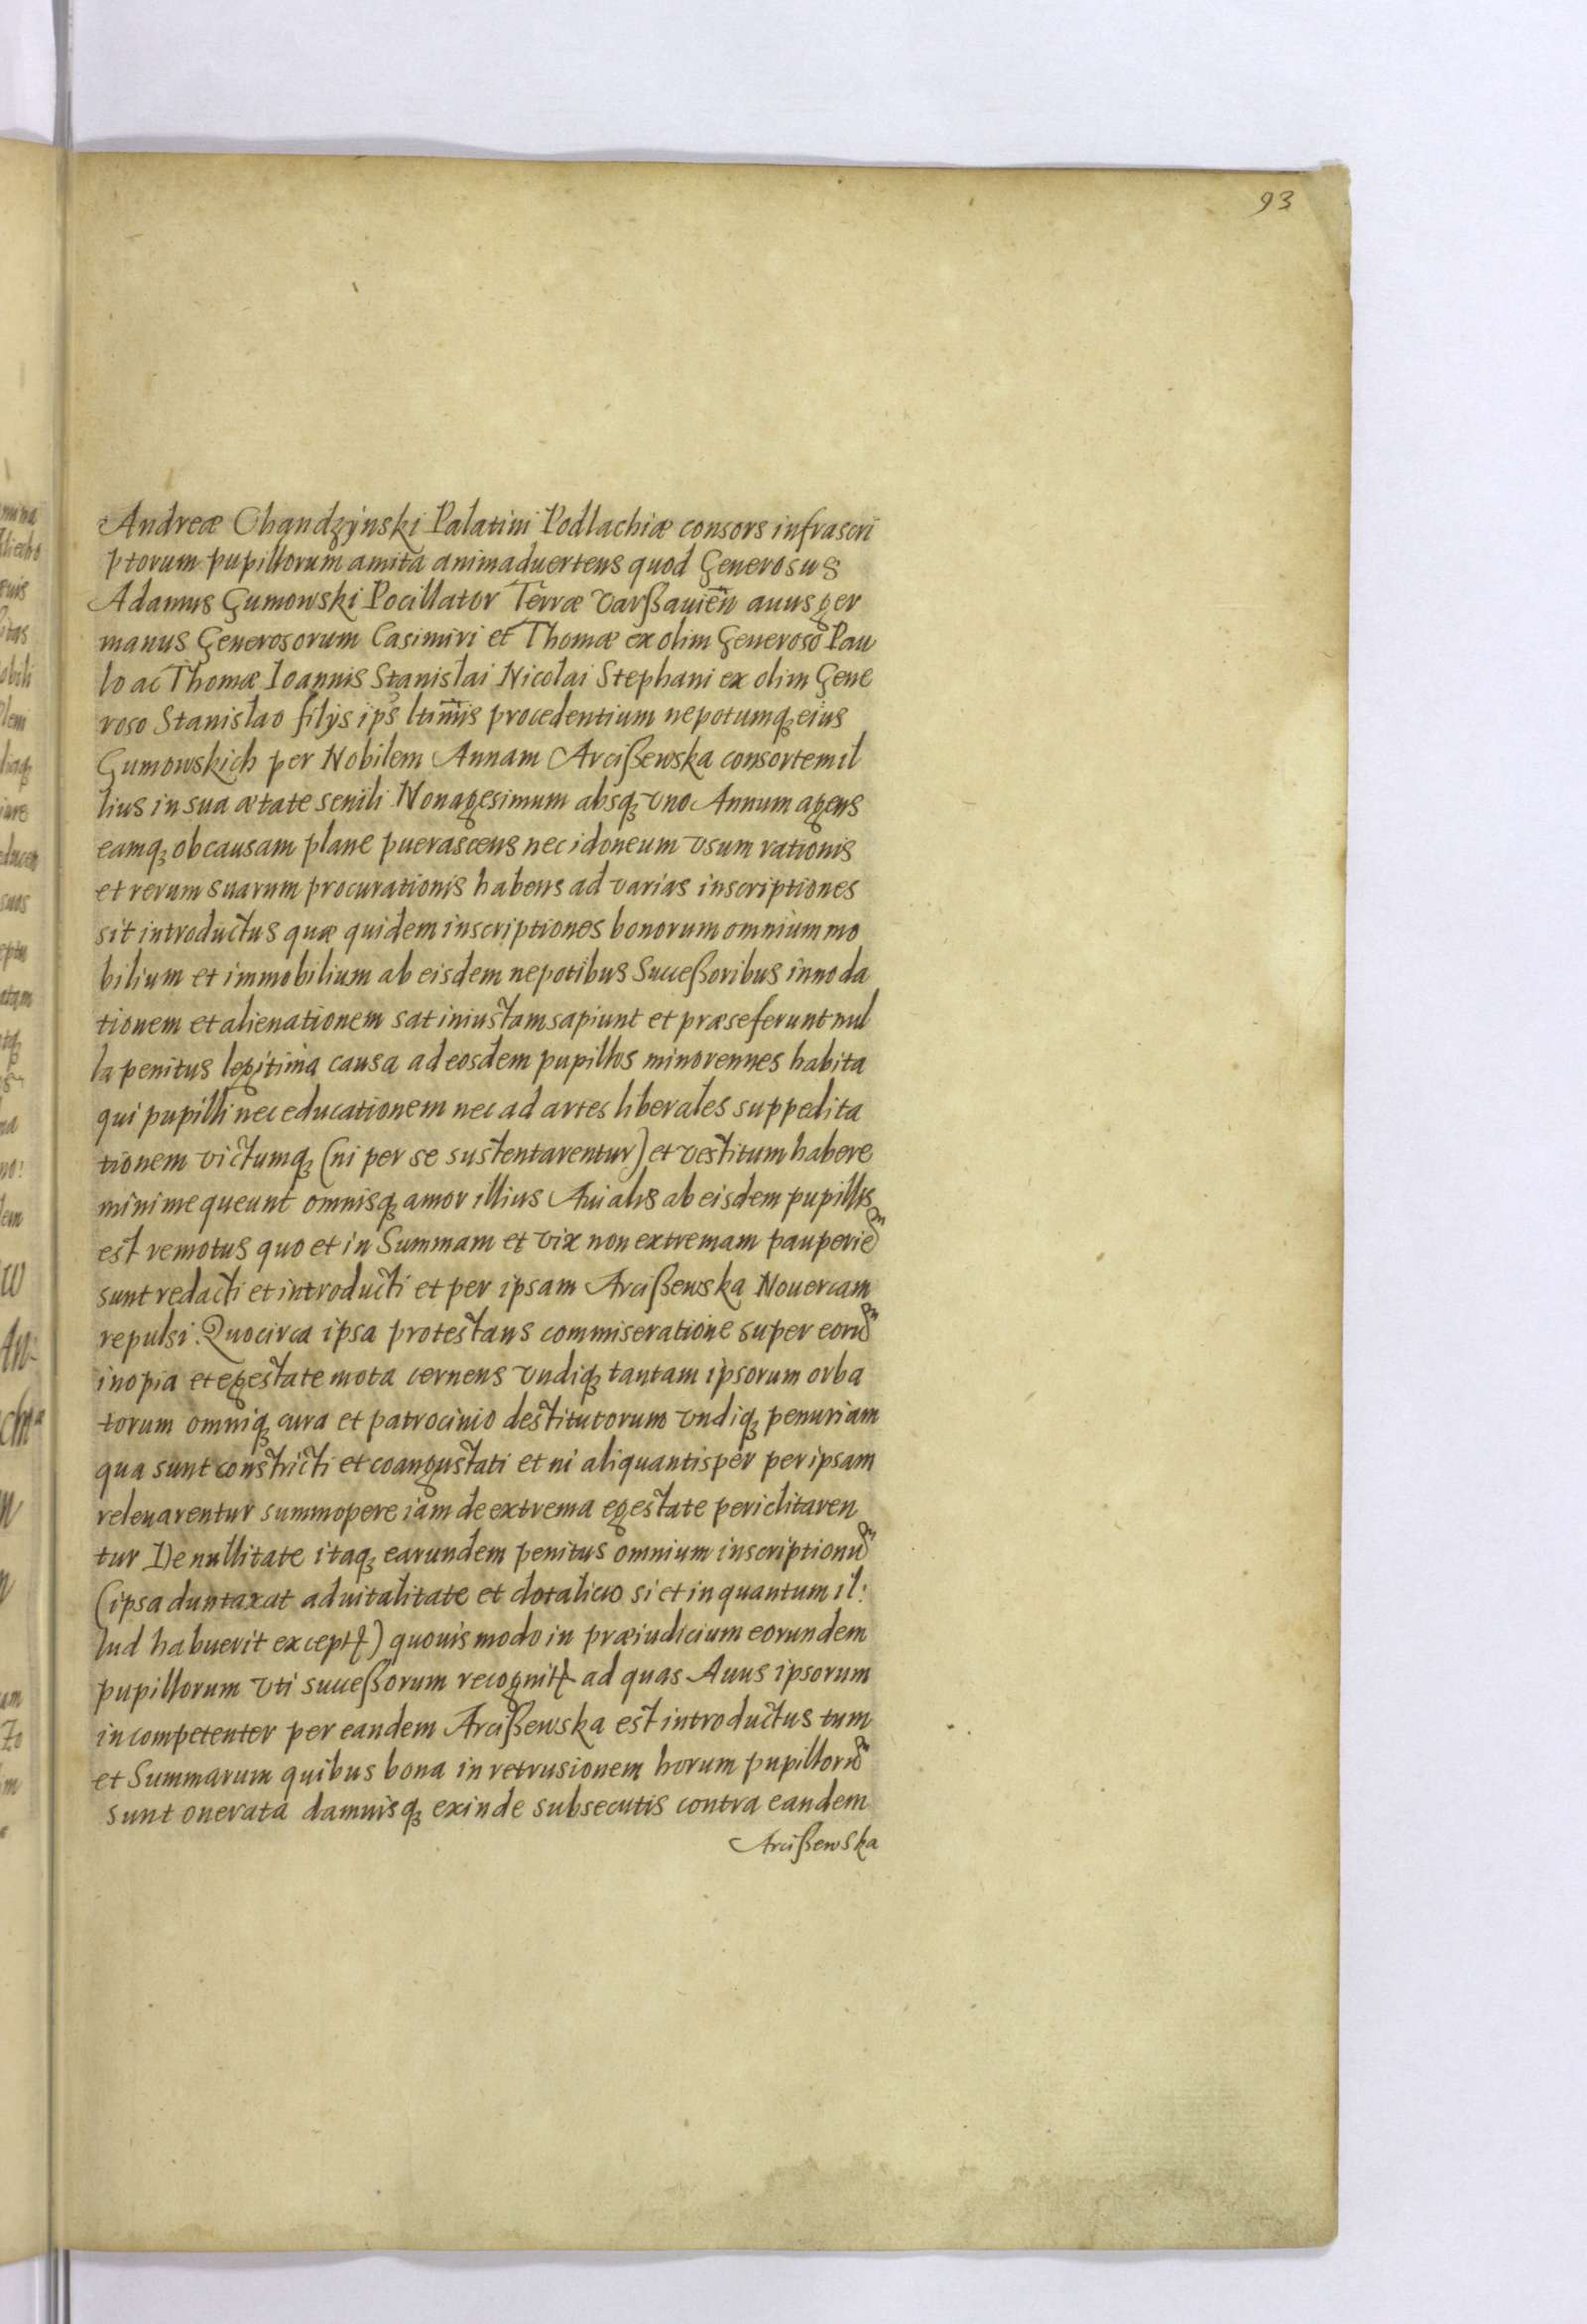 93
Andreæ Chandzÿnski Palatini Podlachiæ consors infrascri
ptorum pupillorum amita animaduertens quod Generosus
Adamus Gumowski Pocillator Terræ Varßauień auus ger
manus Generosorum Casimiri et Thomæ ex olim Generoso Pau
lo ac Thomæ Ioannis Stanislai Nicolai Stephani ex olim Gene
roso Stanislao filÿs ips̃ ltim̃is procedentium nepotumq; eius
Gumowskich per Nobilem Annam Arcißewska consortem il
lius in sua ætate senili Nonagesimum absq; vno Annum agens
eamq; ob causam plane puerascens nec idoneum vsum rationis
et rerum suarum procurationis habens ad varias inscriptiones
sit introductus quæ quidem inscriptiones bonorum omnium mo
bilium et immobilium ab eisdem nepotibus Succeßoribus innoda
tionem et alienationem sat iniustam sapiunt et præseferunt nul
la penitus legitima causa ad eosdem pupillos minorennes habita
qui pupilli nec educationem nec ad artes liberales suppedita
tionem victumq; (ni per se sustentarentur) et vestitum habere
minime queunt omnisq; amor illius Auialis ab eisdem pupillis
est remotus quo et in Summam et vix non extremam pauperiẽ
sunt redacti et introducti et per ipsam Arcißewska Nouercam
repulsi. Quocirca ipsa protestans commiseratione super eorũ
inopia et egestate mota cernens vndiq; tantam ipsorum orba
torum omniq; cura et patrocinio destitutorum vndiq; penuriam
qua sunt constricti et coangustati et ni aliquantisper per ipsam
releuarentur summopere iam de extrema egestate periclitaren
tur De nullitate itaq; earundem penitus omnium inscriptionũ
(ipsa duntaxat aduitalitate et dotalicio si et in quantum il:
lud habuerit exceptꝭ) quouis modo in præiudicium eorundem
pupillorum vti succeßorum recognitꝭ ad quas Auus ipsorum
incompetenter per eandem Arcißewska est introductus tum
et Summarum quibus bona in retrusionem horum pupillorũ
sunt onerata damnisq; exinde subsecutis contra eandem
Arcißewska